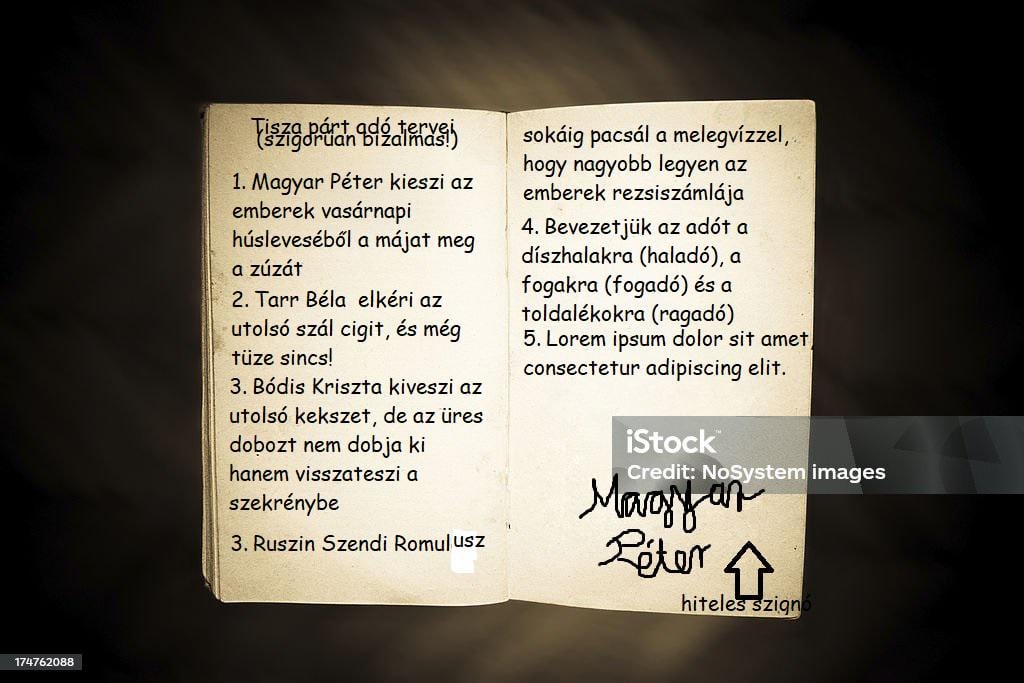 Tisza párt adó tervei
(szigorúan bizalmas!)
1. Magyar Péter kieszi az
emberek vasárnapi
húsleveséből a májat meg
a zúzát
2. Tarr Béla  elkéri az
utolsó szál cigit, és még
tüze sincs!
3. Bódis Kriszta kiveszi az
utolsó kekszet, de az üres
dobozt nem dobja ki
hanem visszateszi a
szekrénybe
3. Ruszin Szendi Romulusz
sokáig pacsál a melegvízzel,
hogy nagyobb legyen az
emberek rezsiszámlája
4. Bevezetjük az adót a
díszhalakra (haladó), a
fogakra (fogadó) és a
toldalékokra (ragadó)
5. Lorem ipsum dolor sit amet,
consectetur adipiscing elit.
iStock™
Credit: NoSystem images
Magyar
Péter
hiteles szignó
174762088